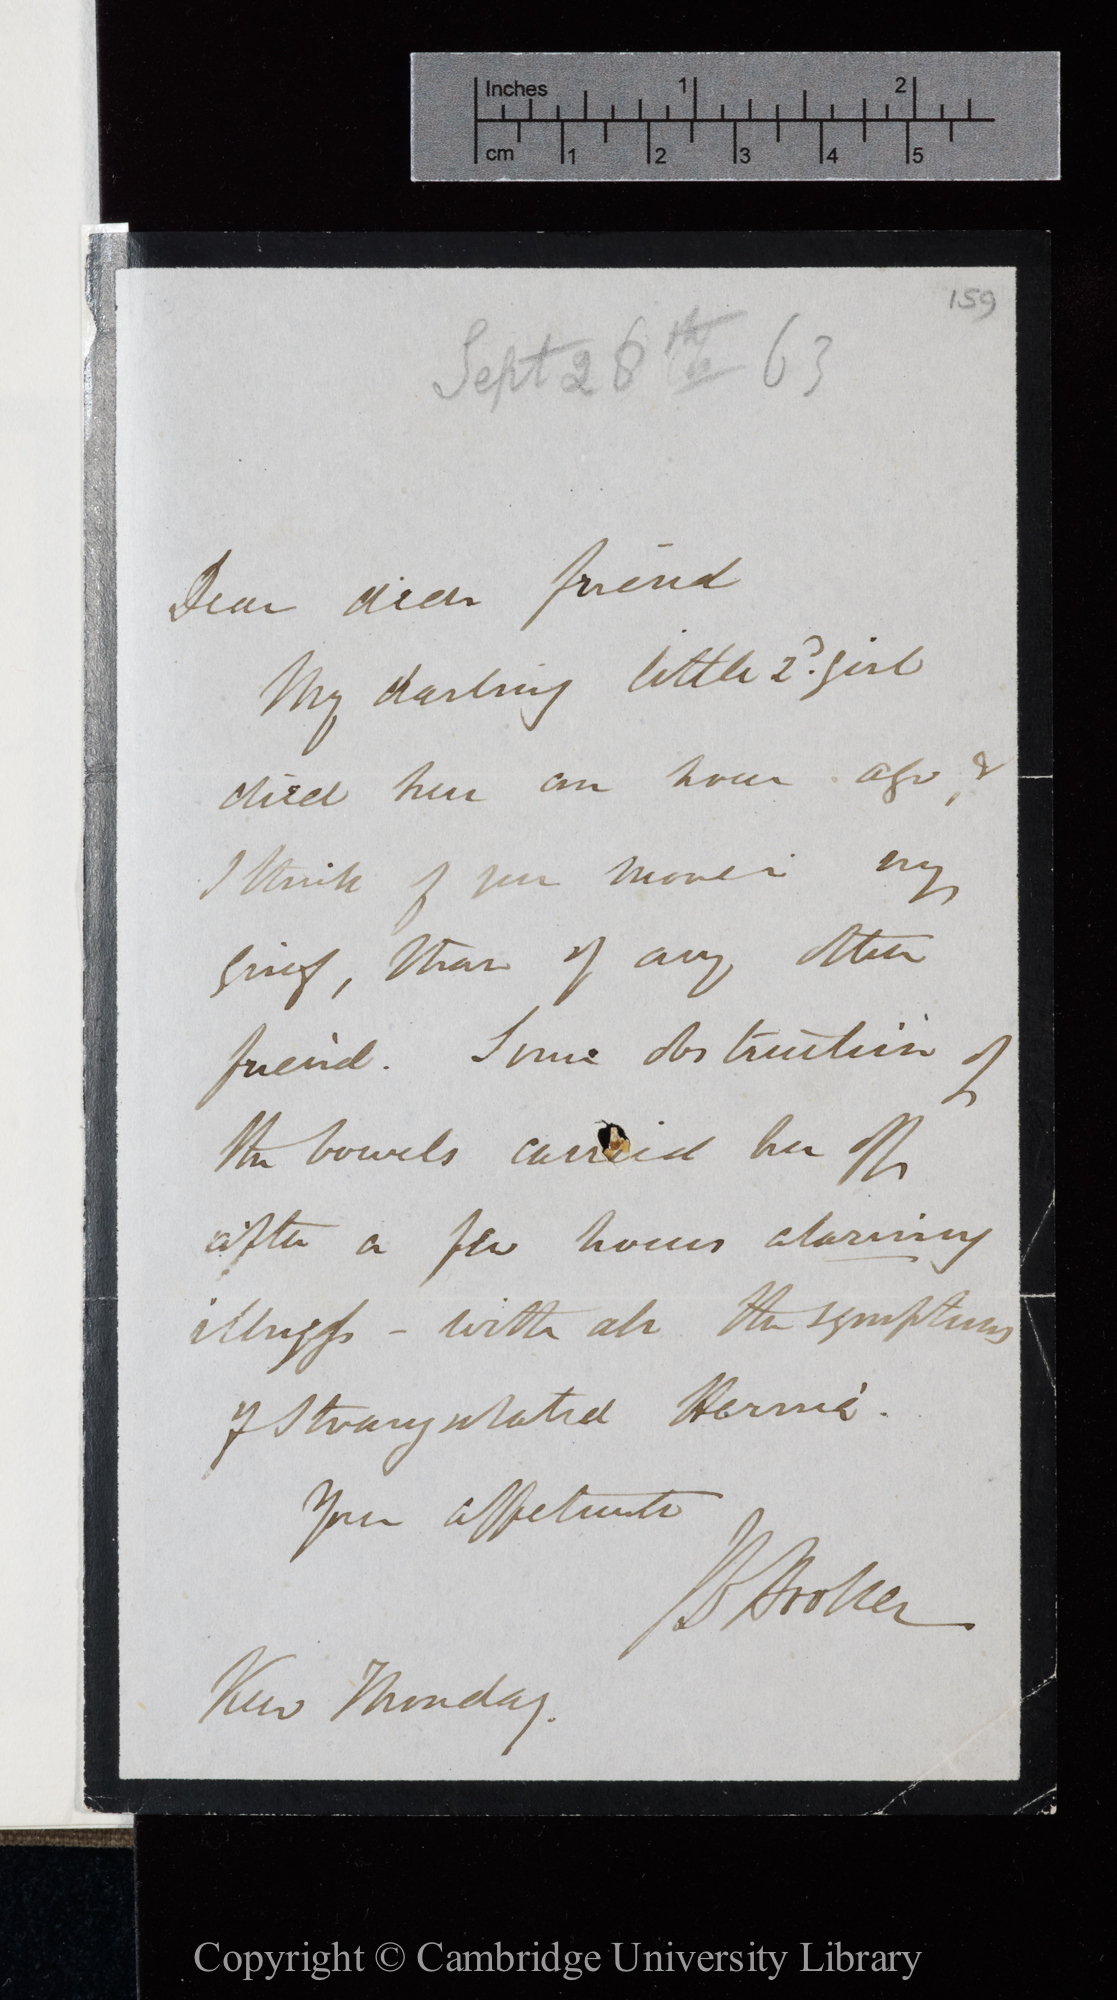 Inches 1 2
cm 1 2 3 4 5
159
Sept 28th 63
Dear dear friend
My darling little 2d. girl
died here an hour ago, &
I think of you more in my
grief, than of any other
friend. Some obstruction of
the bowels carried her off
after a few hours alarming
illness — with all the symptoms
of Strangulated Hernia.
Your affectionate
JD Hooker
Kew Monday.
Copyright © Cambridge University Library